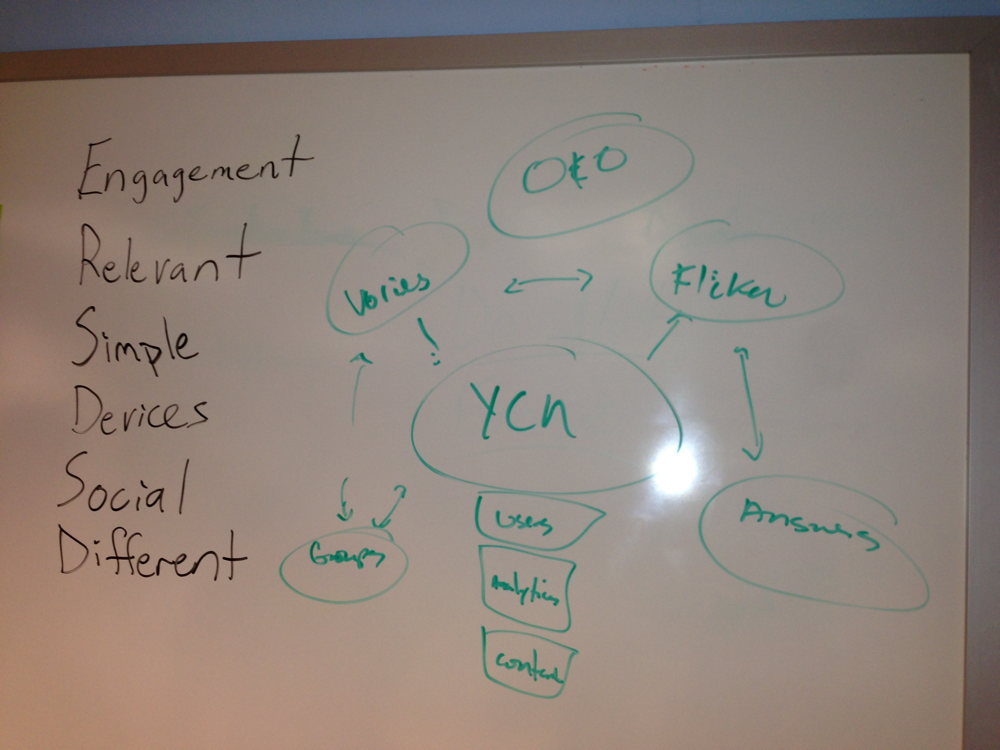 Engagement
Relevant
Simple
Devices
Social
Different
O&O
Fliker
YCN
Answers
Groups
Users
Analytics